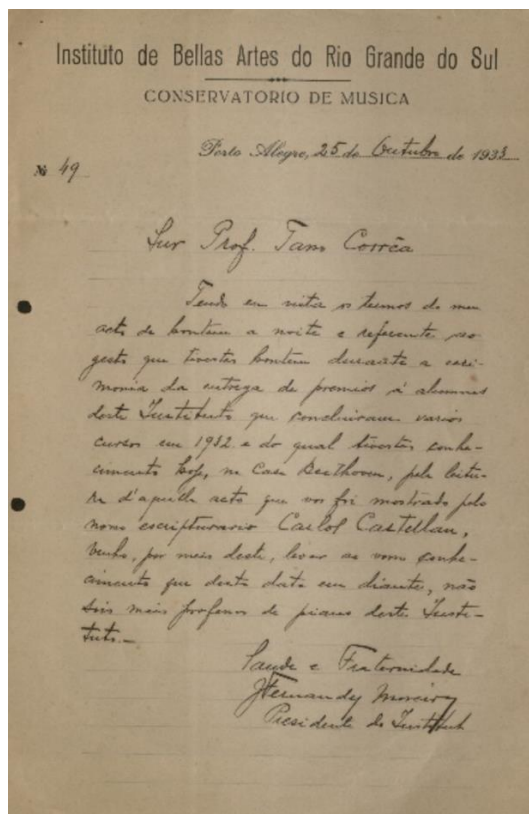 Instituto de Bellas Artes do Rio Grande do Sul
CONSERVATORIO DE MUSICA
Porto Alegre, 25 de Outubro de 1933
Nº 49
Snr Prof. Tasso Corrêa
Tendo em vista os termos do meu
acto de hontem a noite e referente ao
gesto que tivestes hontem durante a ceri-
monia da entrega de premios á alumnas
deste Instituto que concluiram varios
cursos em 1932 e do qual tivestes conhe-
cimento hoje, na Casa Beethoven, pela leitu-
ra d'aquelle acto que vos foi mostrado pelo
nosso escripturario Carlos Castellan,
venho, por meio deste, levar ao vosso conhe-
cimento que desta data em diante, não
sois mais professor de piano deste Insti-
tuto.—
Saude e Fraternidade
Presidente do Instituto